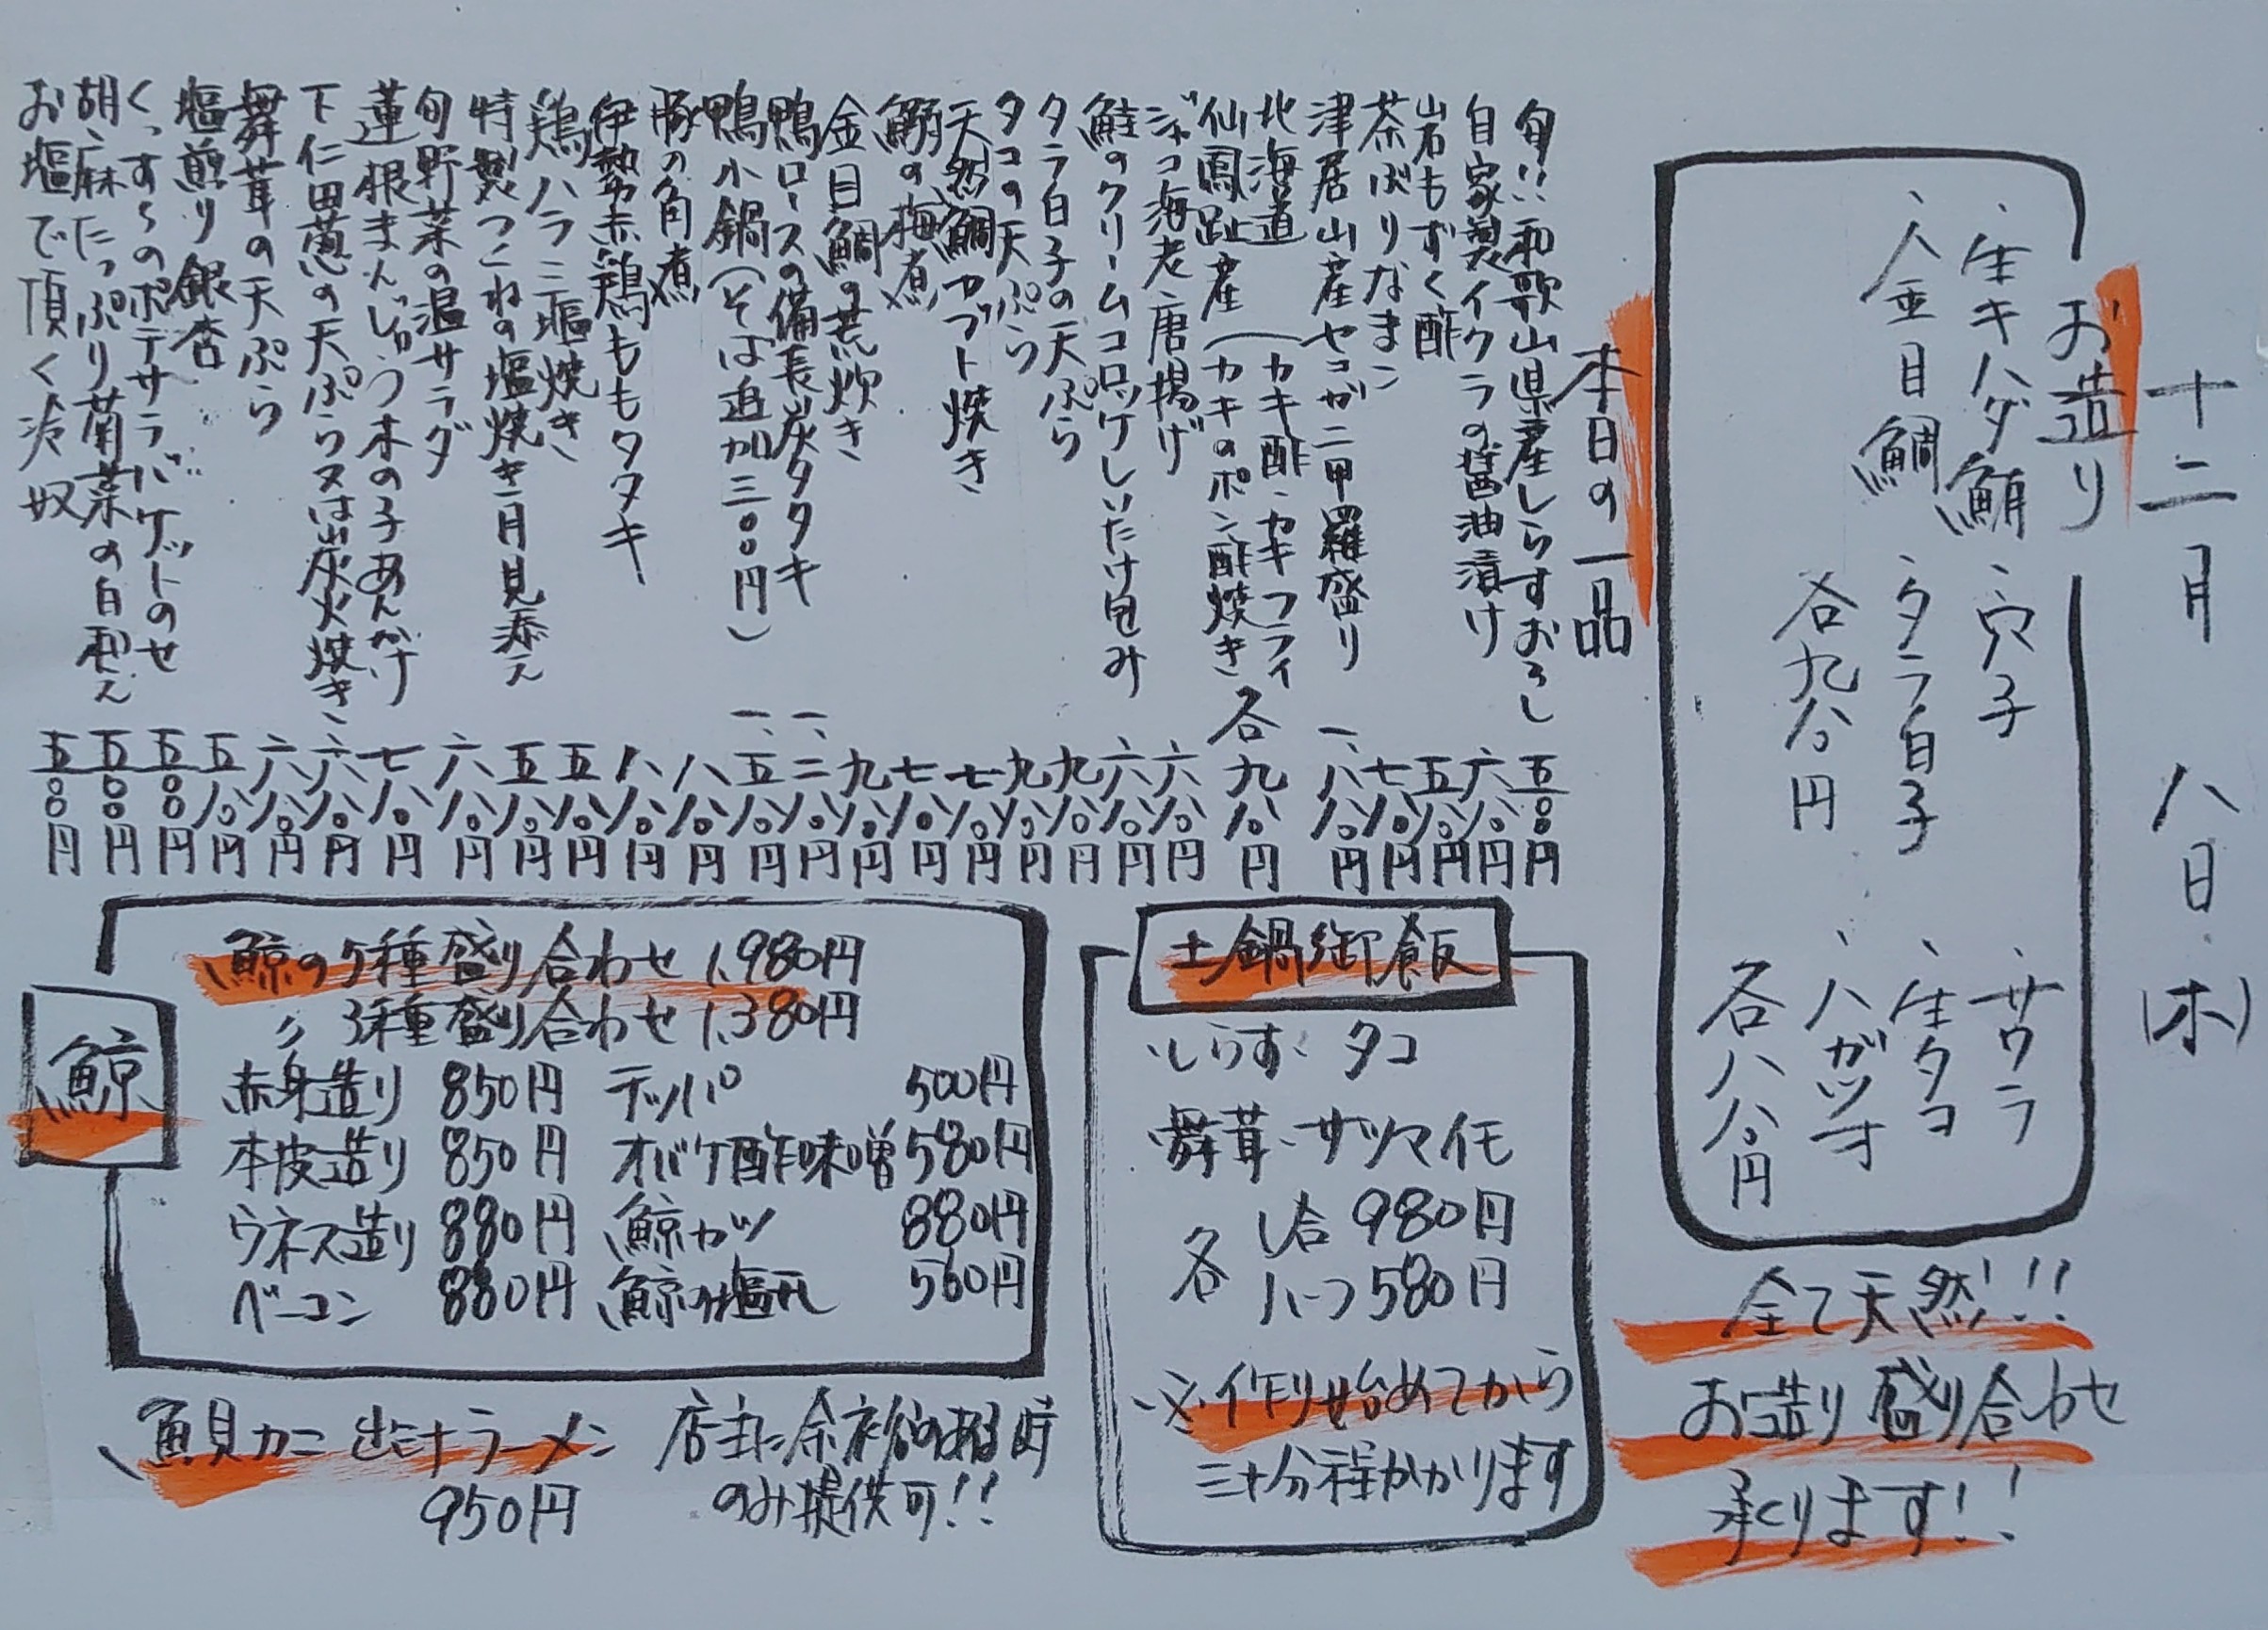 十二月 八日 (木)
お造り
・生キハダ鮪 ・穴子 ・サワラ
・金目鯛 ・タラ白子 ・生タコ
・ハガツオ
各九八〇円 各八八〇円
全て天然!!
お造り盛り合わせ
承ります!!
本日の一品
旬!!和歌山県産しらすおろし 五〇〇円
自家製イクラの醤油漬け 六八〇円
岩もずく酢 五八〇円
茶ぶりなまこ 七八〇円
津居山産セコガニ甲羅盛り 一、八八〇円
北海道 (カキ酢・カキフライ
仙鳳趾産 (カキのポン酢焼き 各九八〇円
ジャコ海老唐揚げ 六八〇円
鮭のクリームコロッケしいたけ包み 六八〇円
タラ白子の天ぷら 九八〇円
タコの天ぷら 九八〇円
天然鯛カブト焼き 七八〇円
鰯の梅煮 七八〇円
金目鯛の荒炊き 九八〇円
鴨ロースの備長炭タタキ 一、二八〇円
鴨小鍋(そば追加三〇〇円) 一、五八〇円
豚の角煮 八八〇円
伊勢赤鶏ももタタキ 八八〇円
鶏ハラミ塩焼き 五八〇円
特製つくねの塩焼き 月見添え 五八〇円
旬野菜の温サラダ 六八〇円
蓮根まんじゅう木の子あんかけ 七八〇円
下仁田葱の天ぷら又は炭火焼き 六八〇円
舞茸の天ぷら 六八〇円
塩煎り銀杏 五八〇円
くっすらのポテサラバゲットのせ 五〇〇円
胡麻たっぷり菊菜の白和え 五〇〇円
お塩で頂く冷奴 五〇〇円
土鍋御飯
・しらす・タコ
・舞茸・サツマイモ
各 1合 980円
ハーフ 580円
※作り始めてから
三十分程かかります
鯨
鯨の5種盛り合わせ 1,980円
〃 3種盛り合わせ 1,380円
赤身造り 850円 テッパ 500円
本皮造り 850円 オバケ酢味噌 580円
ウネス造り 880円 鯨カツ 880円
ベーコン 880円 鯨の塩 560円
魚貝カニ出汁ラーメン 店主に余裕のある時
950円 のみ提供可!!